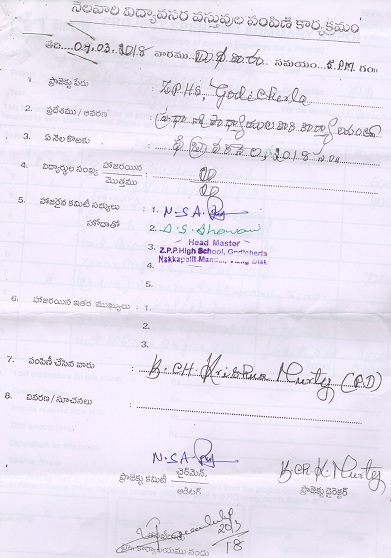 నెలవారి విద్యావసర వస్తువుల పంపిణీ కార్యక్రమం
తేది....07.03.2018 వారము... బుధవారం .. సమయం..5.P.M. గం॥
1. ప్రాజెక్టు పేరు : Z.P.H.S, Godicherla
2. ప్రదేశము / ఆవరణ : ప్రధానోపాధ్యాయుల వారి కార్యాలయంలో
3. ఏ నెల కొఱకు : ఫిబ్రవరి, 2018
4. విద్యార్థుల సంఖ్య హాజరయిన
మొత్తము
5. హాజరైన కమిటీ సభ్యులు : 1. N.S.A.
హోదాతో 2.
Head Master
3. Z.P.P.High School, Godicherla
Nakkapalli.Mandal, Vizag Dist.
4.
5.
6. హాజరయిన ఇతర ముఖ్యులు : 1.
2.
3.
7. పంపిణీ చేసిన వారు : B.CH. Krishna Murty (P.D)
8. వివరణ / సూచనలు :
N.S.A.
ప్రాజెక్టు కమిటీ చైర్‌మెన్.
ఆడిటర్
B.CH.K.Murty
ప్రాజెక్టు డైరెక్టర్
20/3
18
కార్యాలయము నందు